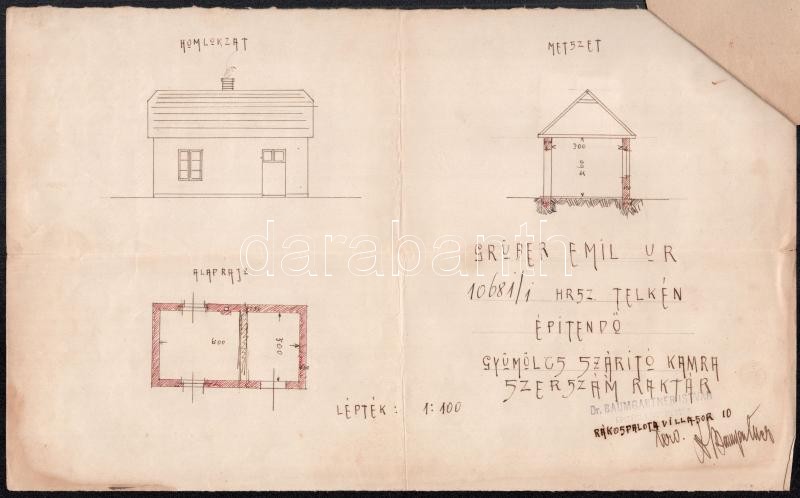 HOMLOKZAT
METSZET
300
ALAPRAJZ
600
300
LÉPTÉK: 1:100
GRÜBER EMIL UR
10681/1 HRSZ TELKÉN
ÉPITENDŐ
GYÜMÖLCS SZÁRITÓ KAMRA
SZERSZÁM RAKTÁR
Dr. BAUMGARTNER ISTVÁN
RÁKOSPALOTA VILLASOR 10
darabanth